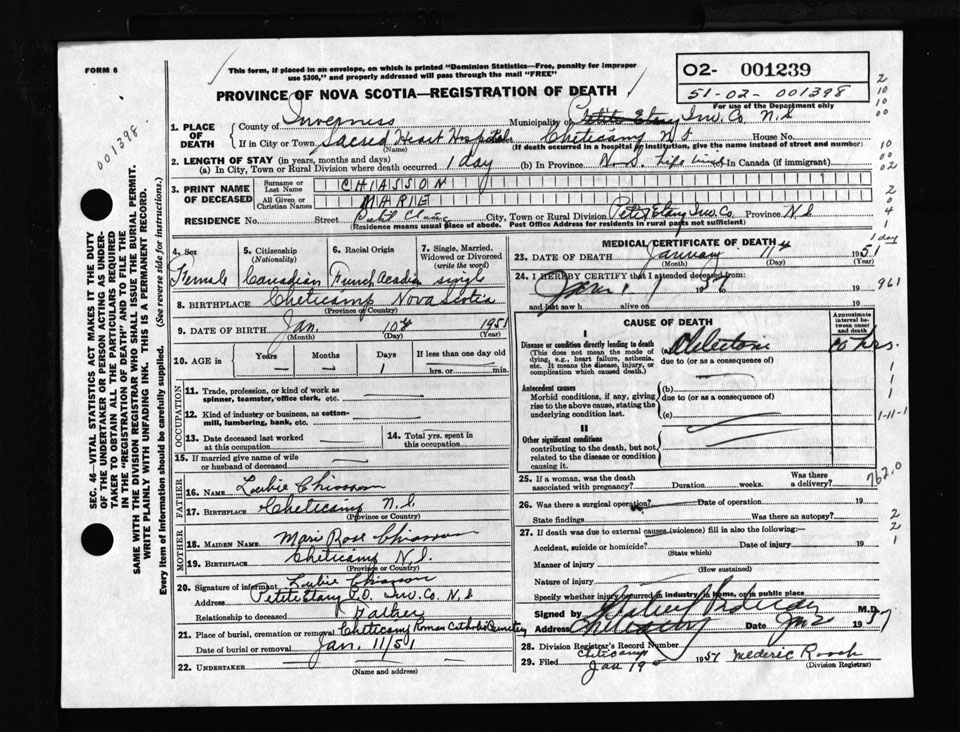 FORM 6
This form, if placed in an envelope, on which is printed "Dominion Statistics—Free, penalty for improper
use $300," and properly addressed will pass through the mail "FREE"
PROVINCE OF NOVA SCOTIA—REGISTRATION OF DEATH
02- 001239
51-02-001398
For use of the Department only
001398.
1. PLACE OF DEATH
County of Inverness Municipality of Inv. Co. N.S
If in City or Town Sacred Heart Hospital Cheticamp N.S House No.
(Name) (If death occurred in a hospital or institution, give the name instead of street and number)
2. LENGTH OF STAY (in years, months and days)
(a) In City, Town or Rural Division where death occurred 1 day (b) In Province N.S. (c) In Canada (if immigrant)
3. PRINT NAME OF DECEASED
Surname or Last Name CHIASSON
All Given or Christian Names MARIE
RESIDENCE No. Street City, Town or Rural Division Petit Etang Inv. Co. Province N.S
(Residence means usual place of abode. Post Office Address for residents in rural parts not sufficient)
4. Sex
5. Citizenship (Nationality)
6. Racial Origin
7. Single, Married, Widowed or Divorced (write the word)
Female Canadian French Acadian single
8. BIRTHPLACE Cheticamp Nova Scotia
(Province or Country)
9. DATE OF BIRTH Jan. 10th 1951
(Month) (Day) (Year)
10. AGE in Years Months Days If less than one day old
— — 1 hrs. or min.
OCCUPATION
11. Trade, profession, or kind of work as spinner, teamster, office clerk, etc.
12. Kind of industry or business, as cotton-mill, lumbering, bank, etc.
13. Date deceased last worked at this occupation
14. Total yrs. spent in this occupation
15. If married give name of wife or husband of deceased
FATHER
16. NAME Loubie Chiasson
17. BIRTHPLACE Cheticamp N.S.
(Province or Country)
MOTHER
18. MAIDEN NAME Marie Rose Chiasson
19. BIRTHPLACE Cheticamp N.S.
(Province or Country)
20. Signature of informant Loubie Chiasson
Address Petit Etang P.O. Inv. Co. N.S
Relationship to deceased Father
21. Place of burial, cremation or removal Cheticamp Roman Catholic Cemetery
Date of burial or removal Jan. 11/51
22. UNDERTAKER
(Name and address)
MEDICAL CERTIFICATE OF DEATH
23. DATE OF DEATH January 11th 1951
(Month) (Day) (Year)
24. I HEREBY CERTIFY that I attended deceased from
and last saw h alive on 19
CAUSE OF DEATH
Approximate interval between onset and death
I
Disease or condition directly leading to death
(This does not mean the mode of dying, e.g., heart failure, asthenia, etc. It means the disease, injury, or complication which caused death.)
(a)
due to (or as a consequence of)
Antecedent causes
Morbid conditions, if any, giving rise to the above cause, stating the underlying condition last.
(b)
due to (or as a consequence of)
(c)
II
Other significant conditions
contributing to the death, but not related to the disease or condition causing it.
25. If a woman, was the death associated with pregnancy? Duration weeks. Was there a delivery?
26. Was there a surgical operation? Date of operation 19
State findings Was there an autopsy?
27. If death was due to external causes (violence) fill in also the following:—
Accident, suicide or homicide? Date of injury 19
(State which)
Manner of injury
(How sustained)
Nature of injury
Specify whether injury occurred in industry, in home, or in public place
Signed by M.D.
Address Cheticamp Date 19
28. Division Registrar's Record Number
Cheticamp
29. Filed Jan 19 1951 Mederic Roach
(Division Registrar)
1 day
961
1-11-1
762.0
SEC. 46—VITAL STATISTICS ACT MAKES IT THE DUTY
OF THE UNDERTAKER OR PERSON ACTING AS UNDER-
TAKER TO OBTAIN ALL THE PARTICULARS REQUIRED
IN THE "REGISTRATION OF DEATH" AND TO FILE THE
SAME WITH THE DIVISION REGISTRAR WHO SHALL ISSUE THE BURIAL PERMIT.
WRITE PLAINLY WITH UNFADING INK. THIS IS A PERMANENT RECORD.
Every item of information should be carefully supplied. (See reverse side for instructions.)